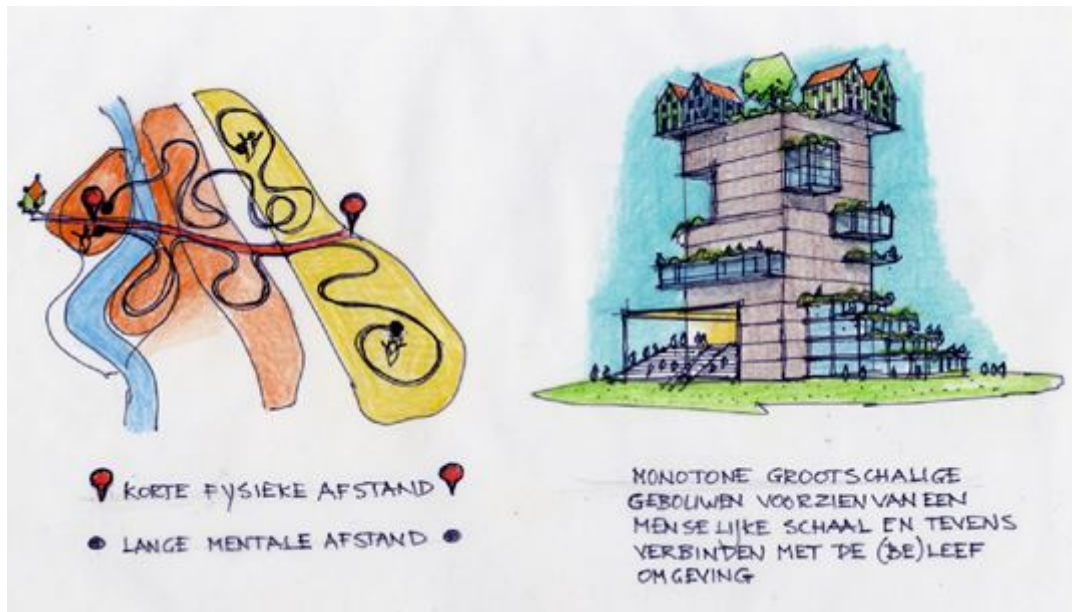 KORTE FYSIEKE AFSTAND
LANGE MENTALE AFSTAND
MONOTONE GROOTSCHALIGE
GEBOUWEN VOORZIEN VAN EEN
MENSELIJKE SCHAAL EN TEVENS
VERBINDEN MET DE (BE)LEEF
OMGEVING